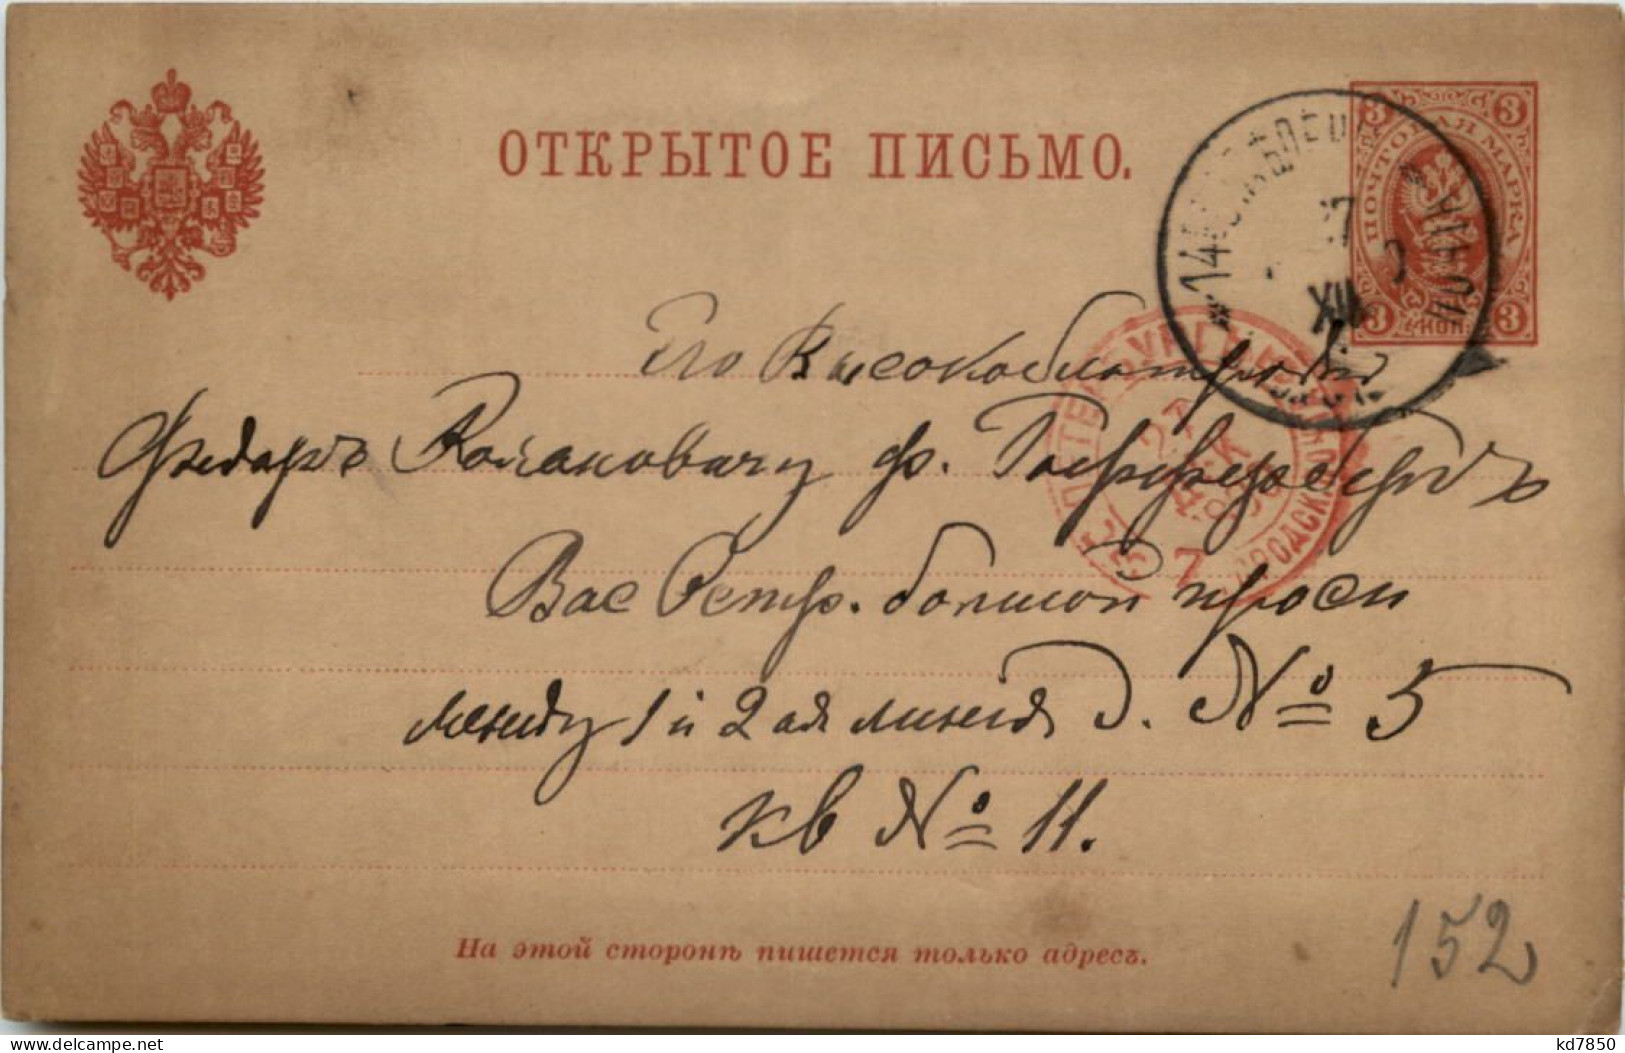 ОТКРЫТОЕ ПИСЬМО.
3 3
ПОЧТОВАЯ МАРКА
3 КОП. 3
14
27
XII
Его Высокоблагородію
ф.
7
Вас Остр. большой просп
между 1 и 2ая линія д. № 5
кв № 11.
152
На этой сторонѣ пишется только адресъ.
kd7850